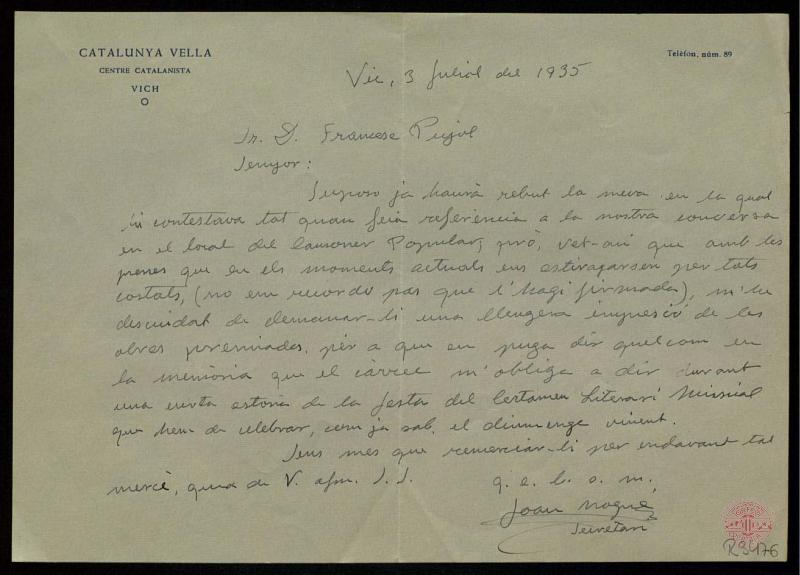 CATALUNYA VELLA
CENTRE CATALANISTA
VICH
Telèfon, núm. 89
Vic, 3 Juliol del 1935
Sr. D. Francesc Pujol
Senyor:
Suposo ja haurà rebut la meva en la qual
li contestava tot quan feia referència a la nostra conversa
en el local del Cançoner Popular; però, vet-aquí que amb les
presses que en els moments actuals ens estiragassen per tots
costats, (no em recordo pas que l'hagi firmada), m'he
descuidat de demanar-li una lleugera impresió de les
obres premiades, per a que en puga dir quelcom en
la memòria que el càrrec m'obliga a dir durant
una curta estona de la festa del Certamen Literari Musical
que hem de celebrar, com ja sab, el diumenge vinent.
Sens mes que remerciar-li per endavant tal
mercè, queda de V. afm. S. S.
q. e. l. s. m.
Joan Nogué
Secretari
R3476